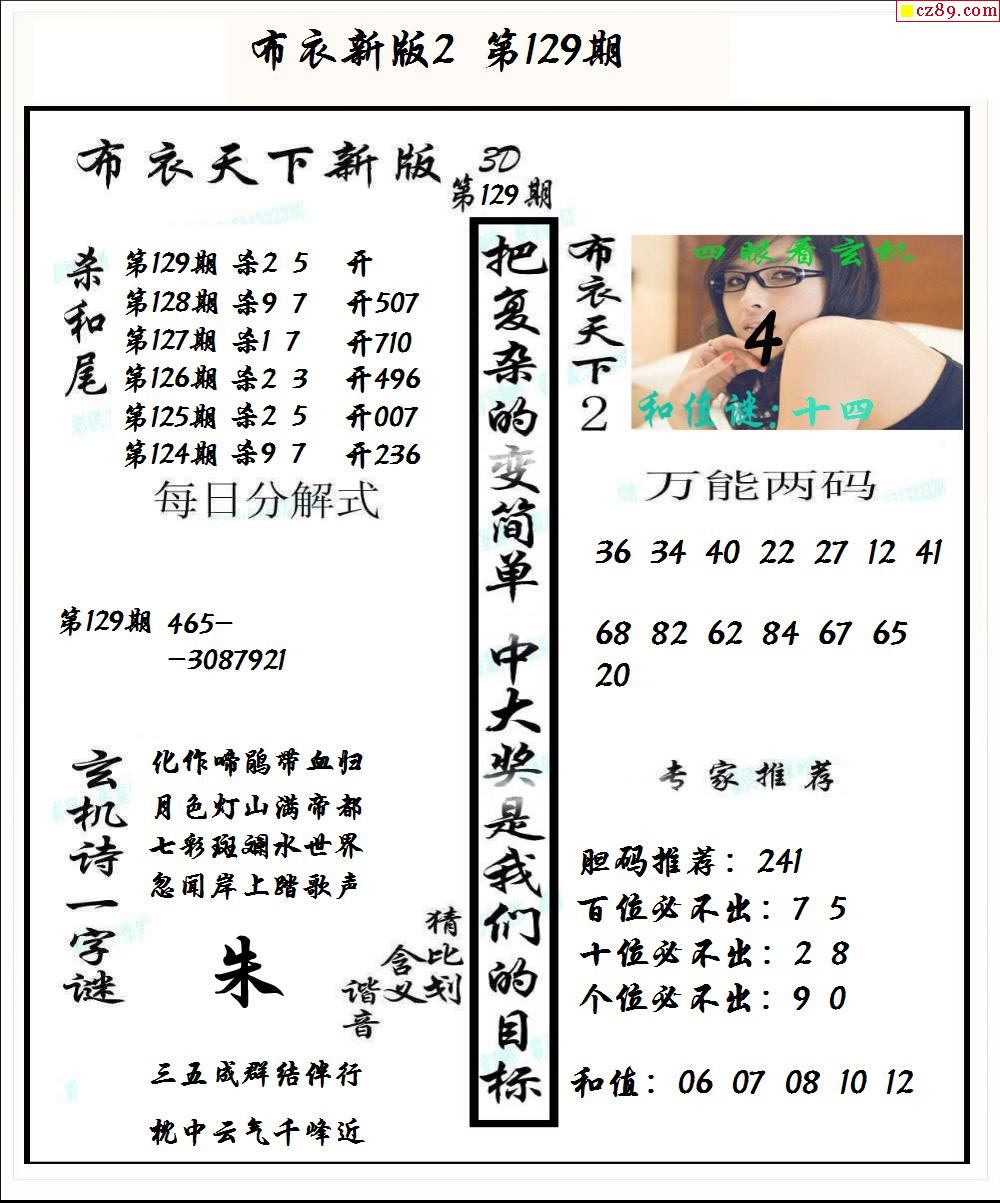 cz89.com
布衣新版2 第129期
布衣天下新版
3D
第129期
杀和尾
第129期 杀2 5 开
第128期 杀9 7 开507
第127期 杀1 7 开710
第126期 杀2 3 开496
第125期 杀2 5 开007
第124期 杀9 7 开236
每日分解式
第129期 465-
-3087921
玄机诗一字谜
化作啼鹃带血归
月色灯山满帝都
七彩斑斓水世界
忽闻岸上踏歌声
朱
猜比划
含义
谐音
三五成群结伴行
枕中云气千峰近
把复杂的变简单 中大奖是我们的目标
布衣天下2
四眼看玄机
4
和值谜:十四
万能两码
36 34 40 22 27 12 41
68 82 62 84 67 65
20
专家推荐
胆码推荐：241
百位必不出：7 5
十位必不出：2 8
个位必不出：9 0
和值：06 07 08 10 12